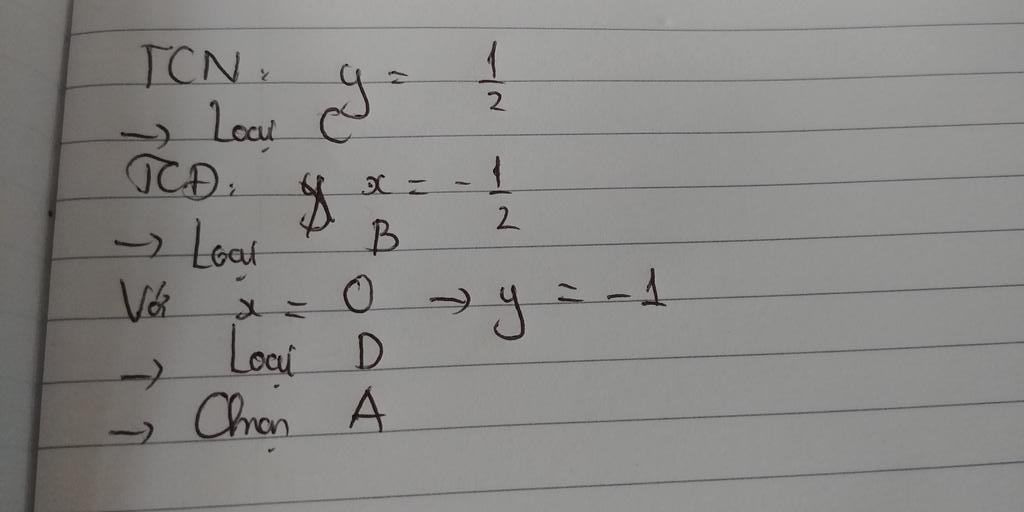 TCN: y = 1/2
→ Loại C
TCĐ: x = -1/2
→ Loại B
Với x = 0 → y = -1
→ Loại D
→ Chọn A